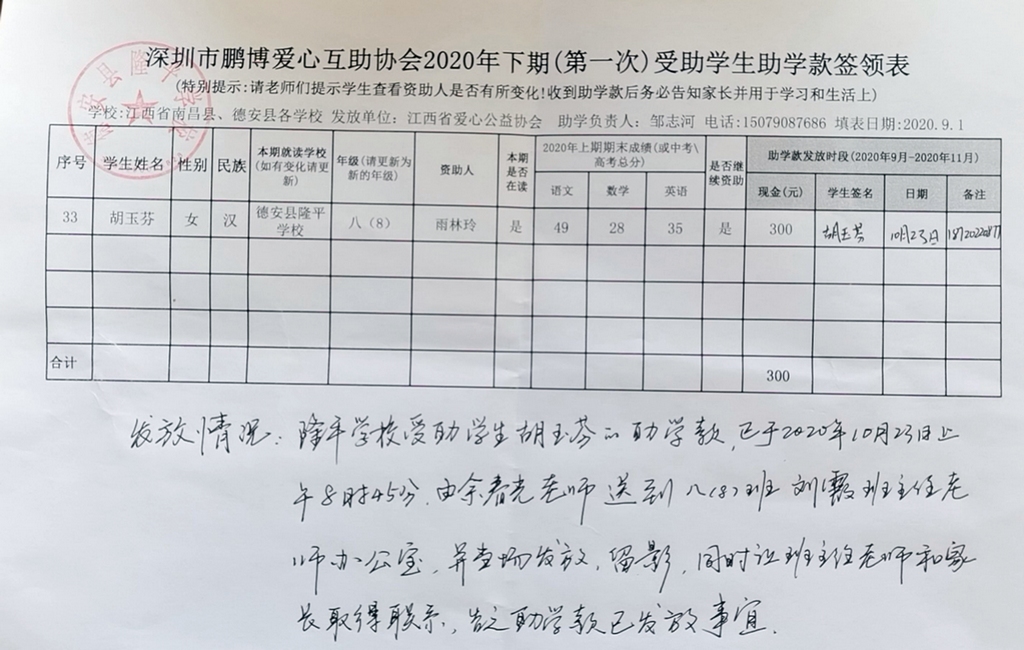 深圳市鹏博爱心互助协会2020年下期(第一次)受助学生助学款签领表
(特别提示:请老师们提示学生查看资助人是否有所变化!收到助学款后务必告知家长并用于学习和生活上)
学校:江西省南昌县、德安县各学校 发放单位: 江西省爱心公益协会 助学负责人: 邹志河 电话:15079087686 填表日期:2020.9.1
序号 学生姓名 性别 民族 本期就读学校(如有变化请更新) 年级(请更新为新的年级) 资助人 本期是否在读 2020年上期期末成绩(或中考\高考总分) 是否继续资助 助学款发放时段(2020年9月-2020年11月)
语文 数学 英语 现金(元) 学生签名 日期 备注
33 胡玉芬 女 汉 德安县隆平学校 八（8） 雨林玲 是 49 28 35 是 300 胡玉芬 10月23日
合计 300
发放情况: 隆平学校受助学生胡玉芬的助学款,已于2020年10月23日上
午8时45分,由余春光老师送到八(8)班刘霞班主任老
师办公室,并当场发放,留影,同时让班主任老师和家
长取得联系,告之助学款已发放事宜.